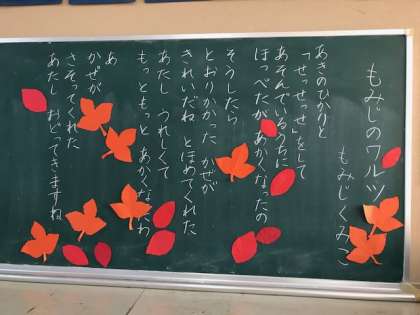 もみじのワルツ
もみじくみこ
あきのひかりと
「せっせっせ」をして
あそんでいるうちに
ほっぺたが あかくなったの
そうしたら
とおりかかった かぜが
きれいだね とほめてくれた
あたし うれしくて
もっともっと あかくなったわ
あ
かぜが
さそってくれた
あたし おどってきますね